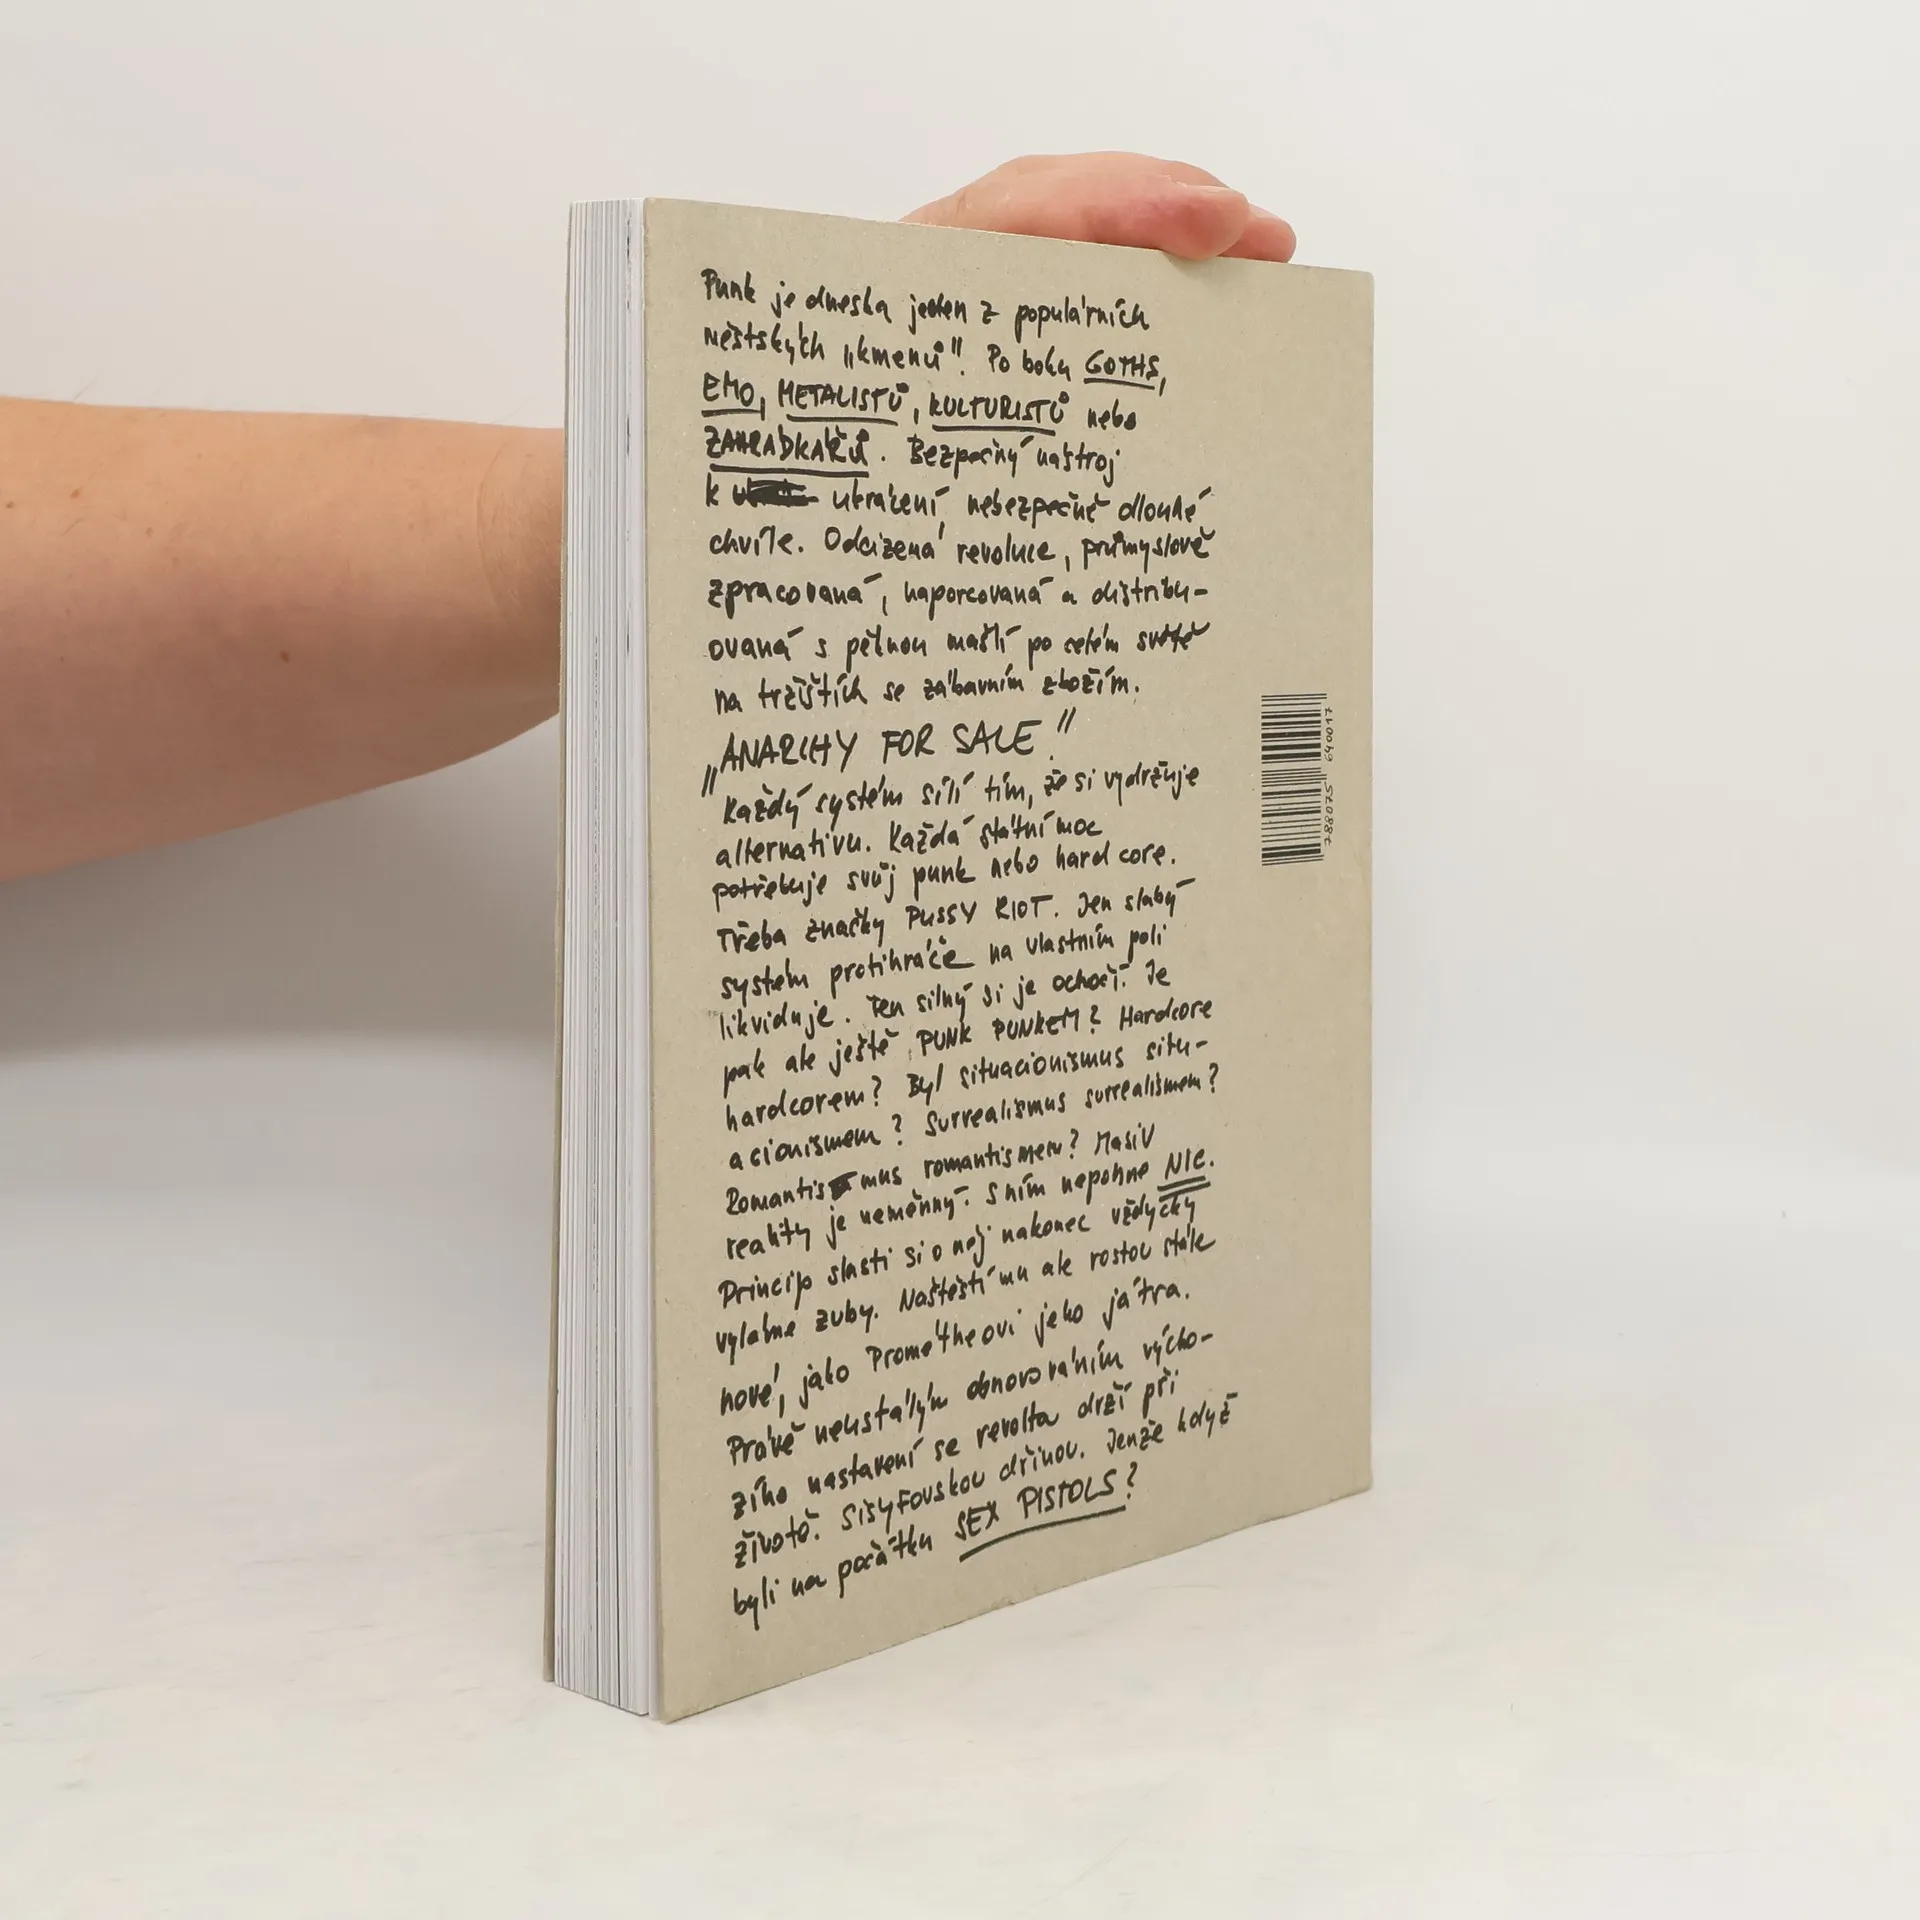 Punk je dneska jeden z populárních
městských „kmenů". Po boku GOTHS,
EMO, METALISTŮ, KULTURISTŮ nebo
ZAHRÁDKÁŘŮ. Bezpečný nástroj
k ukrácení nebezpečně dlouhé
chvíle. Odcizená revoluce, průmyslově
zpracovaná, naporcovaná a distribu-
ovaná s pěknou mašlí po celém světě
na tržištích se zábavním zbožím.
„ANARCHY FOR SALE"
Každý systém sílí tím, že si vydržuje
alternativu. Každá státní moc
potřebuje svůj punk nebo hard core.
Třeba značky PUSSY RIOT. Jen slabý
systém protihráče na vlastním poli
likviduje. Ten silný si je ochočí. Je
pak ale ještě PUNK PUNKEM? Hardcore
hardcorem? Byl situacionismus situ-
acionismem? Surrealismus surrealismem?
Romantismus romantismem? Masiv
reality je neměnný. S ním nepohne NIC.
Princip slasti si o něj nakonec vždycky
vyláme zuby. Naštěstí mu ale rostou stále
nové, jako Prométheovi jeho játra.
Právě neustálým obnovováním výcho-
zího nastavení se revolta drží při
životě. Sisyfovskou dřinou. Jenže když
byli na počátku SEX PISTOLS?